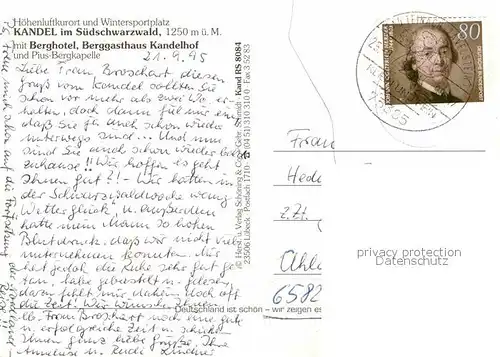 Höhenluftkurort und Wintersportplatz
KANDEL im Südschwarzwald, 1250 m ü. M.
mit Berghotel, Berggasthaus Kandelhof
und Pius-Bergkapelle
21.9.95
Liebe Frau Broschart diesen
Gruß vom Kandel sollten Sie
schon vor mehr als zwei Wo. er
halten, doch dann fiel mir ein
daß Sie ja auch schon wieder
unterwegs sind... Und nun
sind Sie auch schon wieder
zuhause!! Wir hoffen es geht
Ihnen gut?! - Wir hatten in
der Schwarzwaldwoche wenig
Wetterglück, u. außerdem
hatte mein Mann so hohen
Blutdruck, daß wir nicht viel
unternehmen konnten. Mir
hat jedoch die Ruhe sehr gut ge
tan, habe gebastelt u. gelesen,
dazu fehlt mir daheim doch oft
die Zeit! Wir wünschen
Frau Broschart noch eine gute
u. erfolgreiche Zeit u.
Ihnen ganz liebe Grüße. Ihre
Anneliese u. Rudi Lindner
freue mich schon auf die Fortsetzung der
© Herst. u. Verlag Schöning & Co + Gebr. Schmidt · Kand RS 8084
23506 Lübeck · Postfach 1710 · ☎ (04 51) 310 310 · Fax 3 52 83
Deutschland ist schön – wir zeigen es
80
Frau
Hede
z.Zt.
6582
privacy protection
Datenschutz